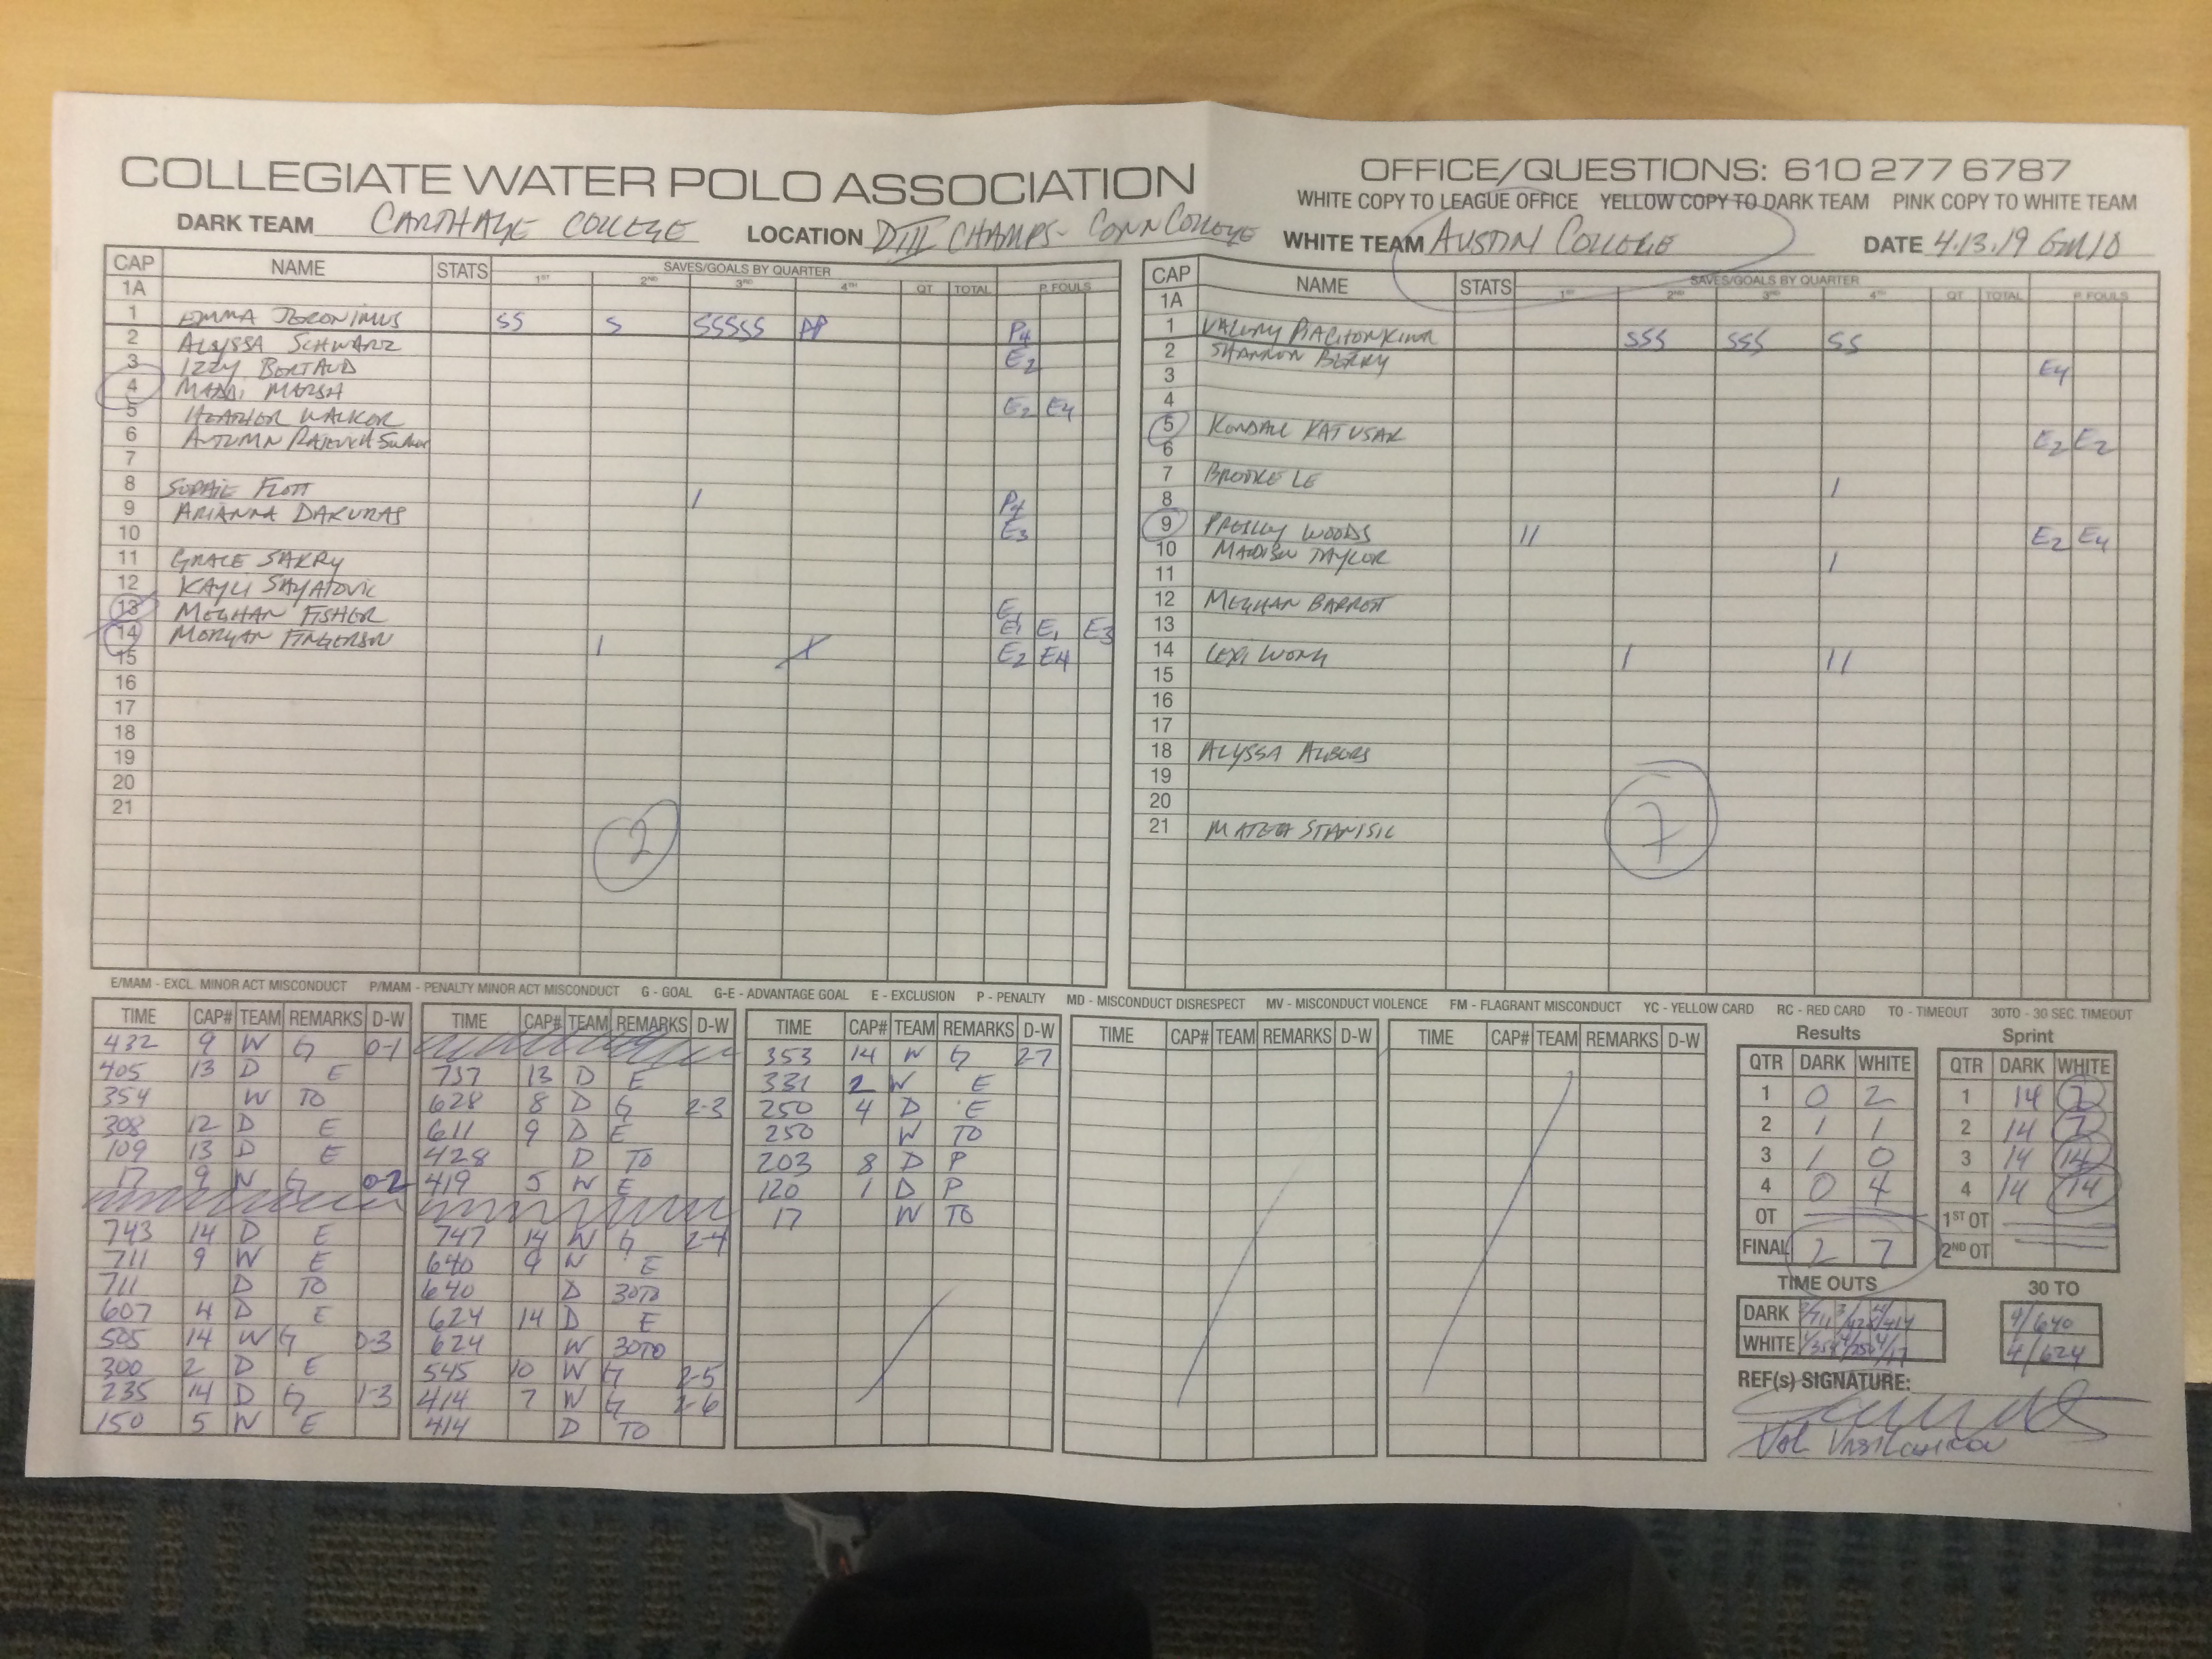 COLLEGIATE WATER POLO ASSOCIATION
OFFICE/QUESTIONS: 610 277 6787
WHITE COPY TO LEAGUE OFFICE YELLOW COPY TO DARK TEAM PINK COPY TO WHITE TEAM
DARK TEAM CARTHAGE COLLEGE LOCATION DIII CHAMPS - CONN COLLEGE WHITE TEAM AUSTIN COLLEGE DATE 4.13.19 GM10
CAP NAME STATS SAVES/GOALS BY QUARTER
1ST 2ND 3RD 4TH OT TOTAL P. FOULS
1A
1 EMMA JERONIMUS SS S SSSSS PP P4
2 ALYSSA SCHWARZ E2
3 IZZY BERTAUD
4 MADDI MARSH E2 E4
5 HEATHER WALKER
6 AUTUMN
7
8 FLOTT 1 P4
9 ARIANNA DAKURAS E3
10
11 GRACE SAKRY
12 KAYLI SAYATOVIC E1
13 MEGHAN FISHER E1 E1 E3
14 MORGAN FINGERSON 1 E2 E4
15
16
17
18
19
20
21
2
CAP NAME STATS SAVES/GOALS BY QUARTER
1ST 2ND 3RD 4TH OT TOTAL P. FOULS
1A
1 SSS SSS SS
2 SHANNON BERRY E4
3
4
5 KENDALL KATUSAK E2 E2
6
7 BROOKE LE 1
8
9 PREILLY WOODS 11 E2 E4
10 MADISON TAYLOR 1
11
12 MEGHAN BARRETT
13
14 LEXI WONG 1 11
15
16
17
18 ALYSSA ALBERS
19
20
21 MATEA STANISIC
7
E/MAM - EXCL. MINOR ACT MISCONDUCT P/MAM - PENALTY MINOR ACT MISCONDUCT G - GOAL G-E - ADVANTAGE GOAL E - EXCLUSION P - PENALTY MD - MISCONDUCT DISRESPECT MV - MISCONDUCT VIOLENCE FM - FLAGRANT MISCONDUCT YC - YELLOW CARD RC - RED CARD TO - TIMEOUT 30TO - 30 SEC. TIMEOUT
TIME CAP# TEAM REMARKS D-W
432 9 W G 0-1
405 13 D E
354 W TO
308 12 D E
109 13 D E
17 9 W G 0-2
743 14 D E
711 9 W E
711 D TO
607 4 D E
505 14 W G 0-3
300 2 D E
235 14 D G 1-3
150 5 W E
TIME CAP# TEAM REMARKS D-W
737 13 D E
628 8 D G 2-3
611 9 D E
428 D TO
419 5 W E
747 14 W G 2-4
640 9 W E
640 D 30TO
624 14 D E
624 W 30TO
545 10 W G 2-5
414 7 W G 2-6
414 D TO
TIME CAP# TEAM REMARKS D-W
353 14 W G 2-7
331 2 W E
250 4 D E
250 W TO
203 8 D P
120 1 D P
17 W TO
TIME CAP# TEAM REMARKS D-W
TIME CAP# TEAM REMARKS D-W
Results
QTR DARK WHITE
1 0 2
2 1 1
3 1 0
4 0 4
OT
FINAL 2 7
Sprint
QTR DARK WHITE
1 14 7
2 14 7
3 14 14
4 14 14
1ST OT
2ND OT
TIME OUTS
DARK 2/711 3/428 4/414
WHITE 1/354 4/250 4/17
30 TO
4/640
4/624
REF(s) SIGNATURE: